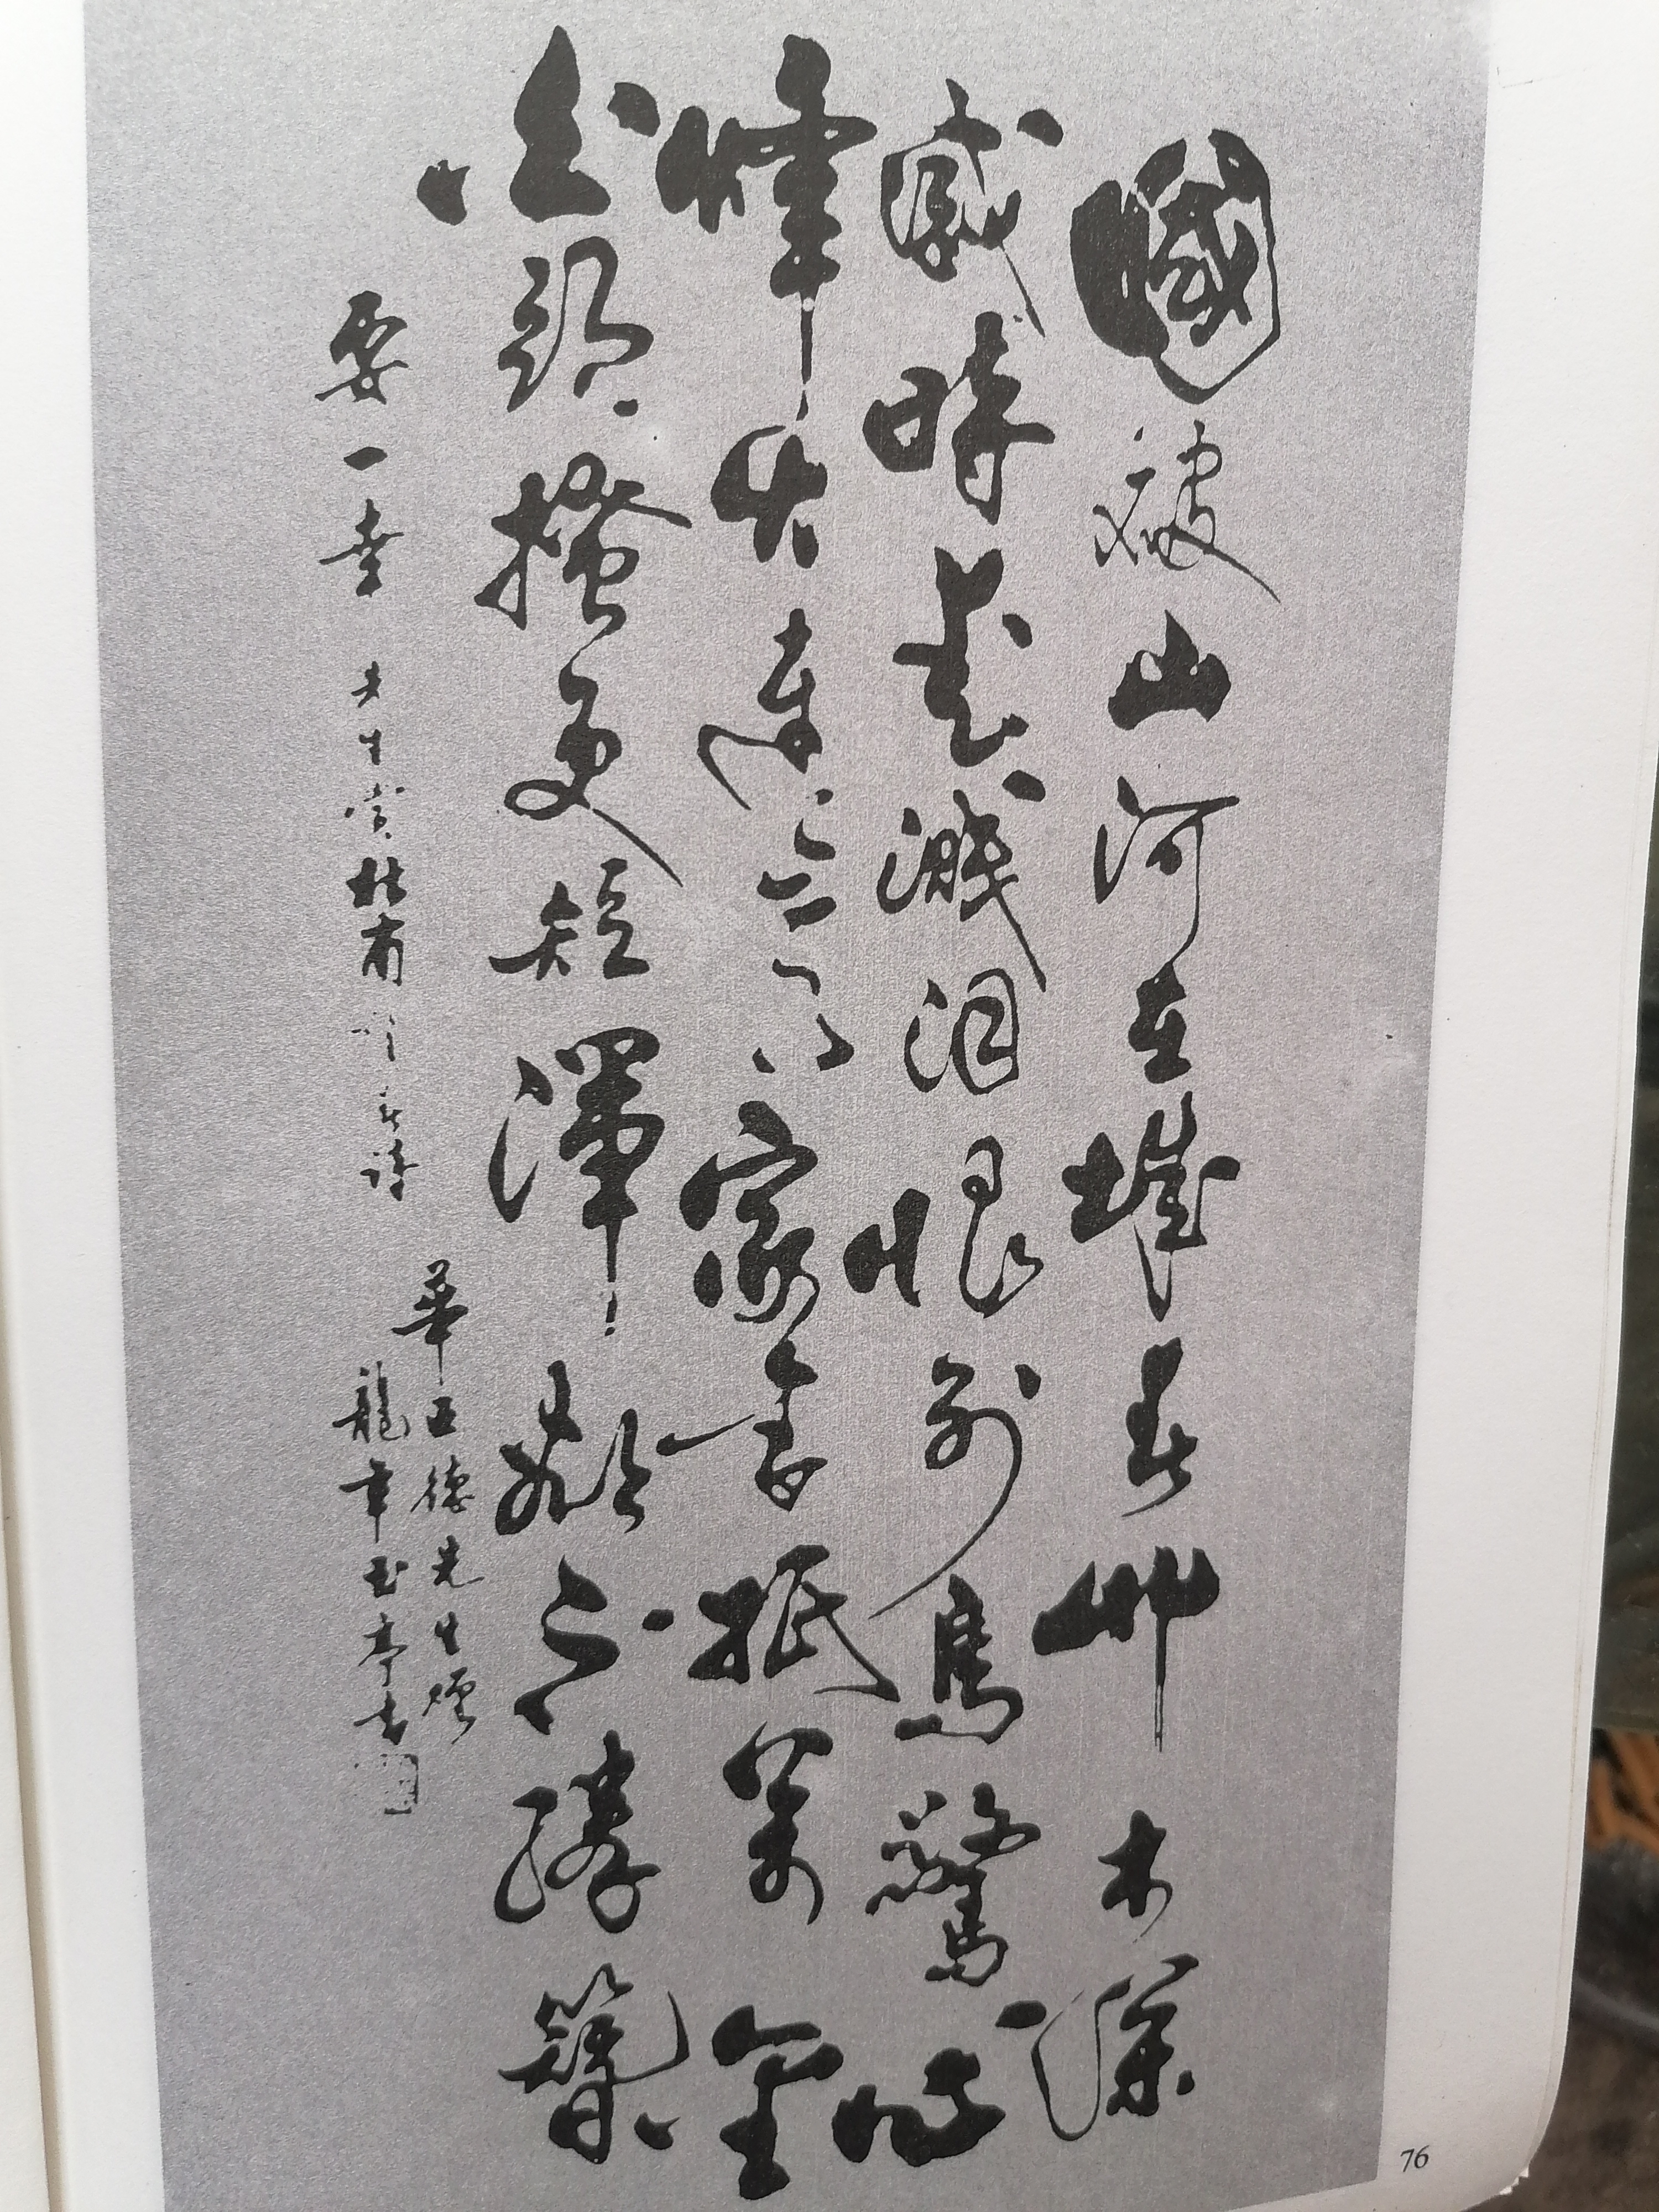 國破山河在城春艸木深
感時花濺泪恨別鳥驚心
烽火連三月家書抵萬金
白頭搔更短渾欲不勝簪
一幸 先生賞 杜甫 春詩
華 德先生
龍年玉亭書
76